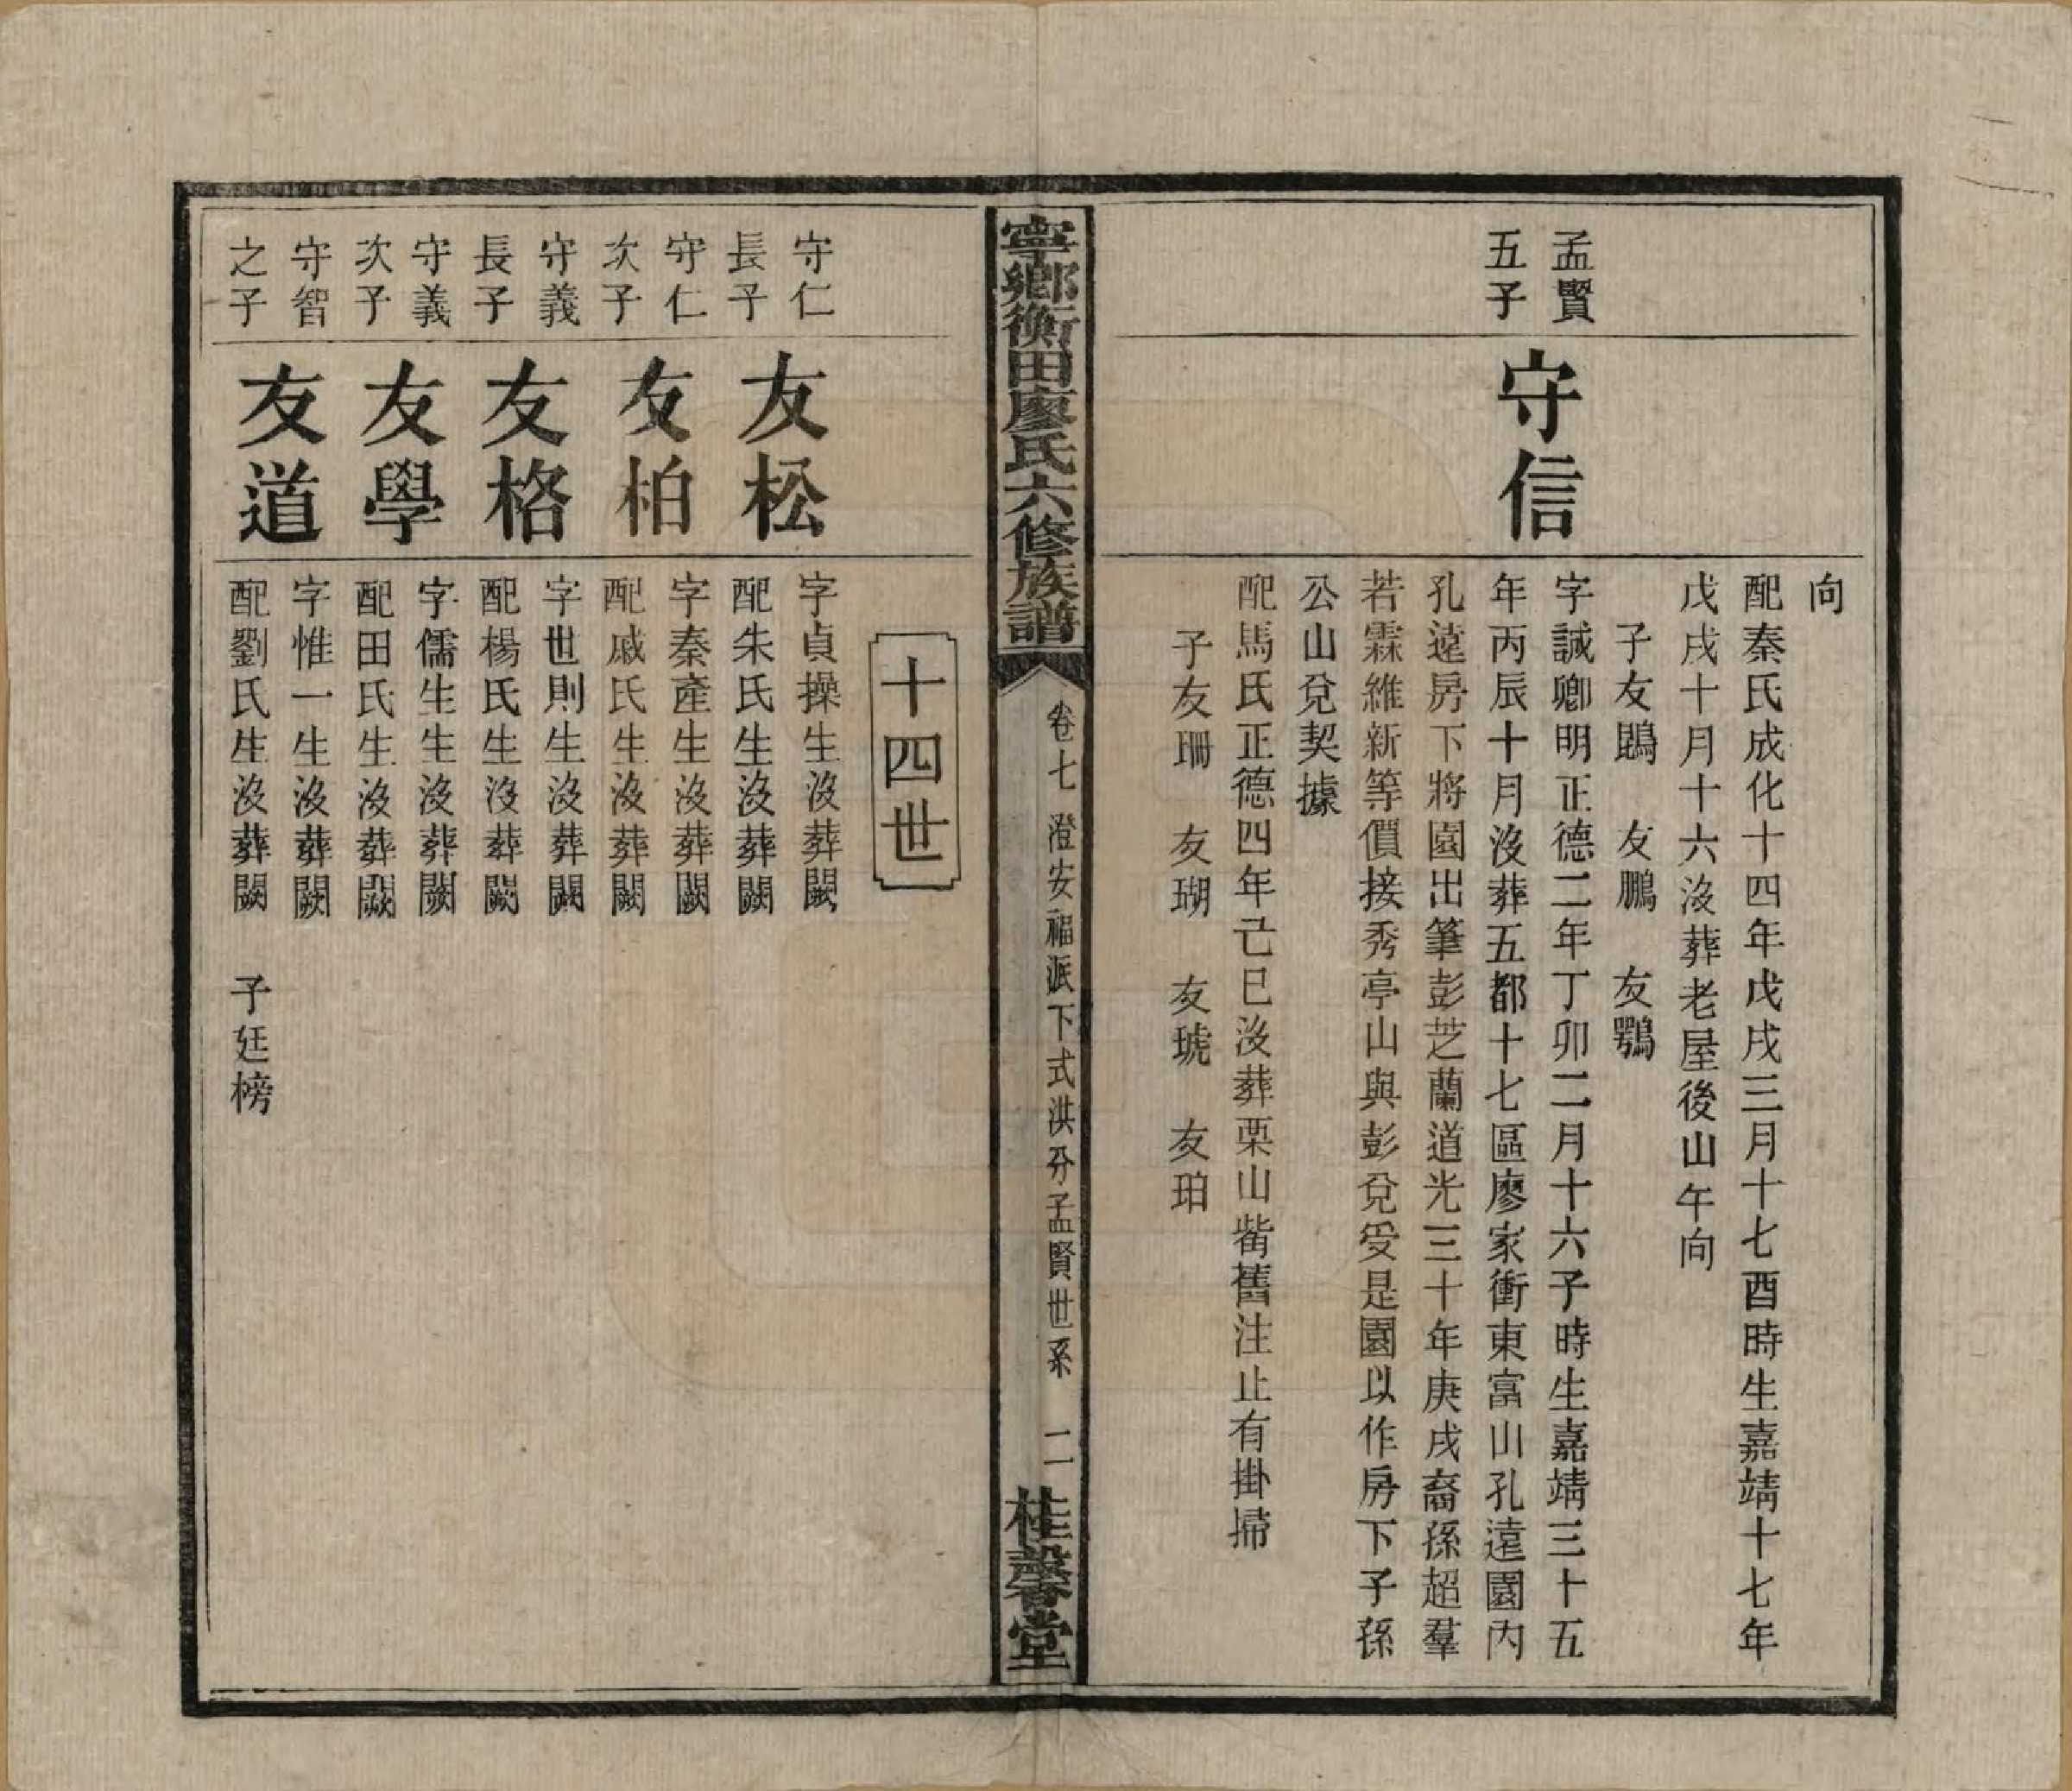 向
配秦氏成化十四年戊戌三月十七酉時生嘉靖十七年
戊戌十月十六沒葬老屋後山午向
子友鵾　友鵬　友鶚
孟賢
五子
守信
字誠卿明正德二年丁卯二月十六子時生嘉靖三十五
年丙辰十月沒葬五都十七區廖家衝東富山孔遠園內
孔遠房下將園出筆彭芝蘭道光三十年庚戌裔孫超羣
若霖維新等價接秀亭山與彭兌受是園以作房下子孫
公山兌契據
配馬氏正德四年己巳沒葬栗山嘴舊注止有掛掃
子友珊　友瑚　友琥　友珀
寧鄉衡田廖氏六修族譜
卷七　澄安福派下式淇分孟賢世系　二
桂馨堂
十四世
守仁
長子
友松
字貞操生沒葬闕
配朱氏生沒葬闕
守仁
次子
友柏
字秦產生沒葬闕
配戚氏生沒葬闕
守義
長子
友格
字世則生沒葬闕
配楊氏生沒葬闕
守義
次子
友學
字儒生生沒葬闕
配田氏生沒葬闕
守智
之子
友道
字惟一生沒葬闕
配劉氏生沒葬闕　子廷榜